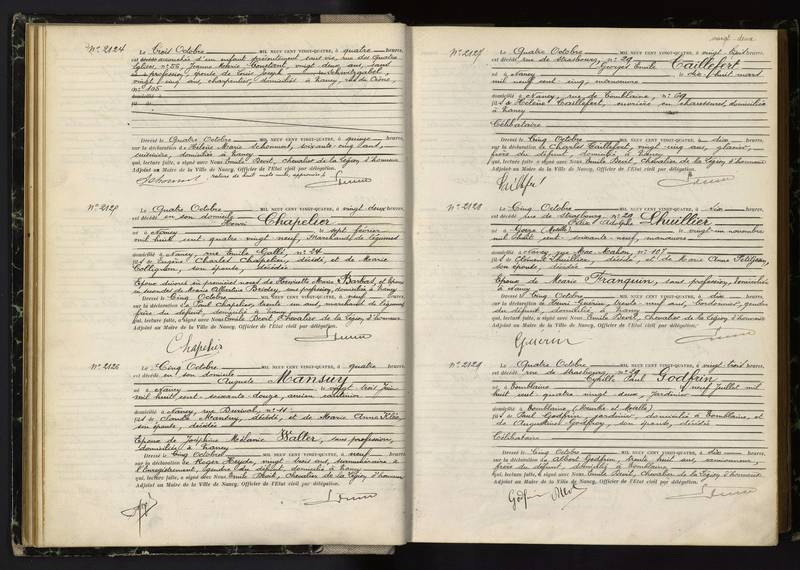 N° 2124
Le Trois Octobre MIL NEUF CENT VINGT-QUATRE, à quatre heures,
est accouchée d'un enfant présentement sans vie, rue des Quatre
Églises, n° 55, Jeanne Marie Constant, vingt deux ans, sans
profession, épouse de Louis Joseph
vingt cinq ans, charpentier, domiciliés à Nancy, rue de
n° 105
domicilié à
fils de
Dressé le Quatre Octobre MIL NEUF CENT VINGT-QUATRE, à quinze heures,
sur la déclaration de Hélène Marie Schommet, soixante cinq ans,
domiciliée à Nancy
qui, lecture faite, a signé avec Nous Emile Bevit, chevalier de la Légion d'honneur
Adjoint au Maire de la Ville de Nancy, Officier de l'État civil par délégation.
N° 2125
Le Quatre Octobre MIL NEUF CENT VINGT-QUATRE, à vingt deux heures,
est décédé en son domicile
Henri Chapelier
né à Nancy le sept février
mil huit cent quatre vingt neuf, Marchand de légumes
domicilié à Nancy, rue Emile Gallé, n° 24
fils de Eugène Charles Chapelier, décédé, et de Marie
Collignon, son épouse, décédée
Epoux divorcé en premières noces de Henriette Marie Barbas, et époux
en secondes de Marie Albertine Bridey, sans profession, domiciliée à Nancy
Dressé le Cinq Octobre MIL NEUF CENT VINGT-QUATRE, à neuf heures,
sur la déclaration de Paul Chapelier, trente un ans, marchand de légumes
frère du défunt, domicilié à Nancy
qui, lecture faite, a signé avec Nous Emile Bevit, Chevalier de la Légion d'honneur
Adjoint au Maire de la Ville de Nancy, Officier de l'État civil par délégation.
Chapelier
N° 2126
Le Cinq Octobre MIL NEUF CENT VINGT-QUATRE, à quatre heures,
est décédé en son domicile
Auguste Mansuy
né à Nancy le vingt trois Juin
mil huit cent soixante douze, ancien
domicilié à Nancy, rue n° 11
fils de Claude Mansuy, décédé, et de Marie Anne
son épouse, décédée
Epoux de Joséphine Mélanie Walter, sans profession,
domiciliée à Nancy
Dressé le Cinq Octobre MIL NEUF CENT VINGT-QUATRE, à neuf heures,
sur la déclaration de Roger vingt trois ans, surnuméraire à
l'Enregistrement, gendre du défunt, domicilié à Nancy
qui, lecture faite, a signé avec Nous Emile Bevit, Chevalier de la Légion d'honneur
Adjoint au Maire de la Ville de Nancy, Officier de l'État civil par délégation.
vingt-deux
N° 2127
Le Quatre Octobre MIL NEUF CENT VINGT-QUATRE, à vingt heures,
est décédé rue de Strasbourg, n° 29
Georges Emile Taillefert
né à Nancy le dix-huit mars
mil neuf cent cinq, manœuvre
domicilié à Nancy, rue de Tomblaine, n° 69
fils de Hélène Taillefert, ouvrière en chaussures, domiciliée
à Nancy
Célibataire
Dressé le Cinq Octobre MIL NEUF CENT VINGT-QUATRE, à dix heures,
sur la déclaration de Charles Taillefert, vingt cinq ans, glacier,
frère du défunt, domicilié à Nancy
qui, lecture faite, a signé avec Nous Emile Bevit, Chevalier de la Légion d'honneur
Adjoint au Maire de la Ville de Nancy, Officier de l'État civil par délégation.
N° 2128
Le Cinq Octobre MIL NEUF CENT VINGT-QUATRE, à six heures,
est décédé rue de Strasbourg, n° 29
Adolphe Lhuillier
né à Gorze (Moselle) le vingt-un novembre
mil huit cent soixante-neuf, manœuvre
domicilié à Nancy, rue Mac-Mahon, n° 107
fils de Clément Lhuillier, décédé, et de Marie Anne Petitjean,
son épouse, décédée
Epoux de Marie Franguin, sans profession, domiciliée
à Nancy
Dressé le Cinq Octobre MIL NEUF CENT VINGT-QUATRE, à dix heures,
sur la déclaration de Henri Guérin, trente neuf ans, cordonnier, gendre
du défunt, domicilié à Nancy
qui, lecture faite, a signé avec Nous Emile Bevit, Chevalier de la Légion d'honneur
Adjoint au Maire de la Ville de Nancy, Officier de l'État civil par délégation.
Guerin
N° 2129
Le Quatre Octobre MIL NEUF CENT VINGT-QUATRE, à vingt trois heures,
est décédé rue de Strasbourg, n° 29
Cyrille Paul Godfrin
né à Tomblaine le neuf Juillet mil
huit cent quatre vingt deux, jardinier
domicilié à Tomblaine (Meurthe et Moselle)
fils de Paul Godfrin, jardinier, domicilié à Tomblaine, et
de Augustine Godfroy, son épouse, décédée
Célibataire
Dressé le Cinq Octobre MIL NEUF CENT VINGT-QUATRE, à dix heures,
sur la déclaration de Albert Godfrin, trente huit ans,
frère du défunt, domicilié à Tomblaine
qui, lecture faite, a signé avec Nous Emile Bevit, Chevalier de la Légion d'honneur
Adjoint au Maire de la Ville de Nancy, Officier de l'État civil par délégation.
Godfrin Albert